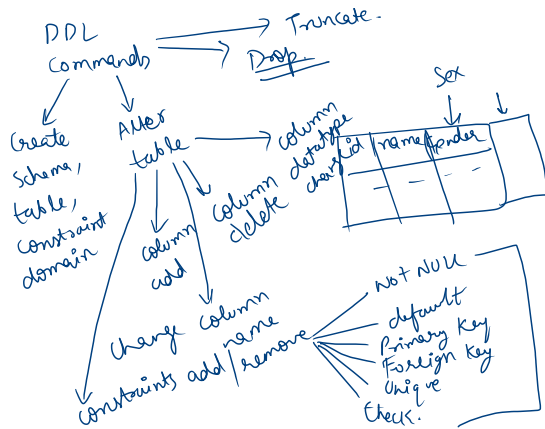 DDL
Commands
Truncate.
Drop.
Create
schema,
table,
constraint
domain
Alter
table
column
datatype
change
Sex
id name gender
column
delete
column
add
change column
name
constraints add/remove
Not NULL
default
Primary Key
Foreign Key
Unique
Check.